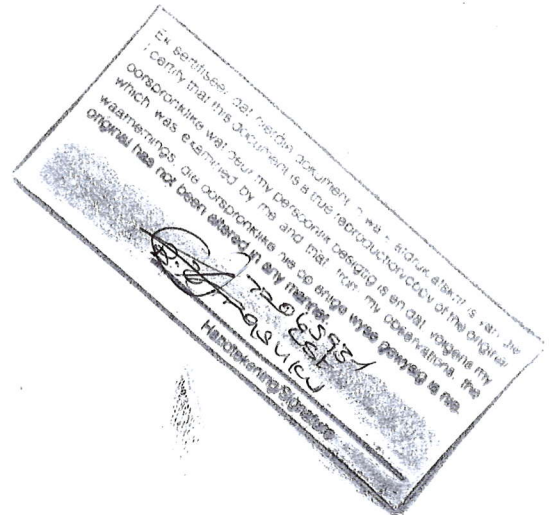 Ek sertifiseer dat hierdie dokument 'n ware afdruk afskrif is van die
I certify that this document is a true reproduction/copy of the original
oorspronklike wat deur my persoonlik besigtig is en dat, volgens my
which was examined by me and that, from my observations, the
waarnemings, die oorspronklike nie op enige wyse gewysig is nie.
original has not been altered in any manner.
B.
Handtekening Signature